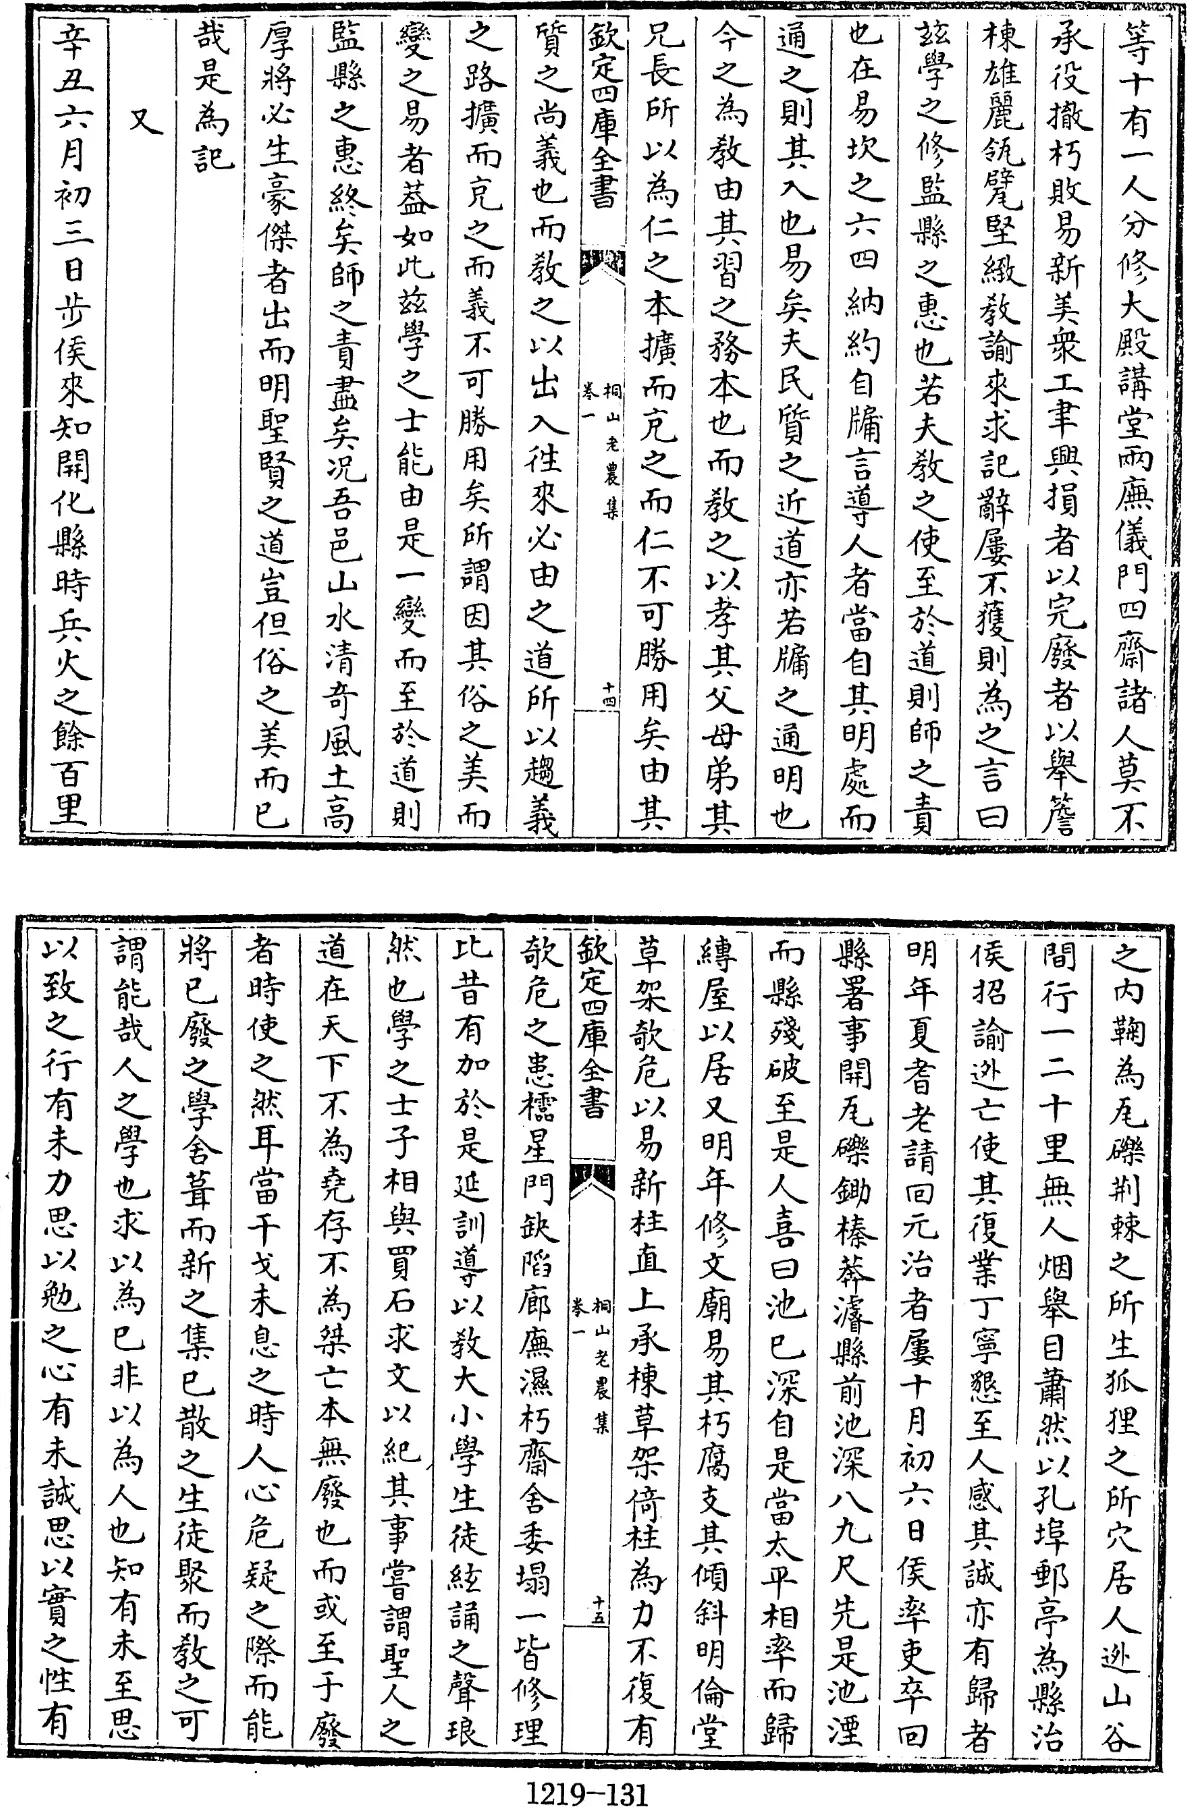 等十有一人分修大殿講堂兩廡儀門四齋諸人莫不
承役撤朽敗易新美衆工聿興損者以完廢者以舉簷
棟雄麗瓴甓堅緻教諭來求記辭屢不獲則為之言曰
兹學之修監縣之惠也若夫教之使至於道則師之責
也在易坎之六四納約自牖言導人者當自其明處而
通之則其入也易矣夫民質之近道亦若牖之通明也
今之為教由其習之務本也而教之以孝其父母弟其
兄長所以為仁之本擴而充之而仁不可勝用矣由其
欽定四庫全書
桐山老農集
卷一
十四
質之尚義也而教之以出入徃來必由之道所以趨義
之路擴而充之而義不可勝用矣所謂因其俗之美而
變之易者蓋如此兹學之士能由是一變而至於道則
監縣之惠終矣師之責盡矣況吾邑山水清奇風土高
厚將必生豪傑者出而明聖賢之道豈但俗之美而已
哉是為記
又
辛丑六月初三日步侯來知開化縣時兵火之餘百里
之内鞠為瓦礫荆棘之所生狐狸之所穴居人迯山谷
間行一二十里無人烟舉目蕭然以孔埠郵亭為縣治
侯招諭迯亡使其復業丁寧懇至人感其誠亦有歸者
明年夏耆老請回元治者屢十月初六日侯率吏卒回
縣署事開瓦礫鋤榛莽濬縣前池深八九尺先是池湮
而縣殘破至是人喜曰池已深自是當太平相率而歸
縳屋以居又明年修文廟易其朽腐支其傾斜明倫堂
草架欹危以易新柱直上承棟草架倚柱為力不復有
欽定四庫全書
桐山老農集
卷一
十五
欹危之患櫺星門缺陷廊廡濕朽齋舍委塌一皆修理
比昔有加於是延訓導以教大小學生徒絃誦之聲琅
然也學之士子相與買石求文以紀其事嘗謂聖人之
道在天下不為堯存不為桀亡本無廢也而或至于廢
者時使之然耳當干戈未息之時人心危疑之際而能
將已廢之學舍葺而新之集已散之生徒聚而教之可
謂能哉人之學也求以為已非以為人也知有未至思
以致之行有未力思以勉之心有未誠思以實之性有
1219-131